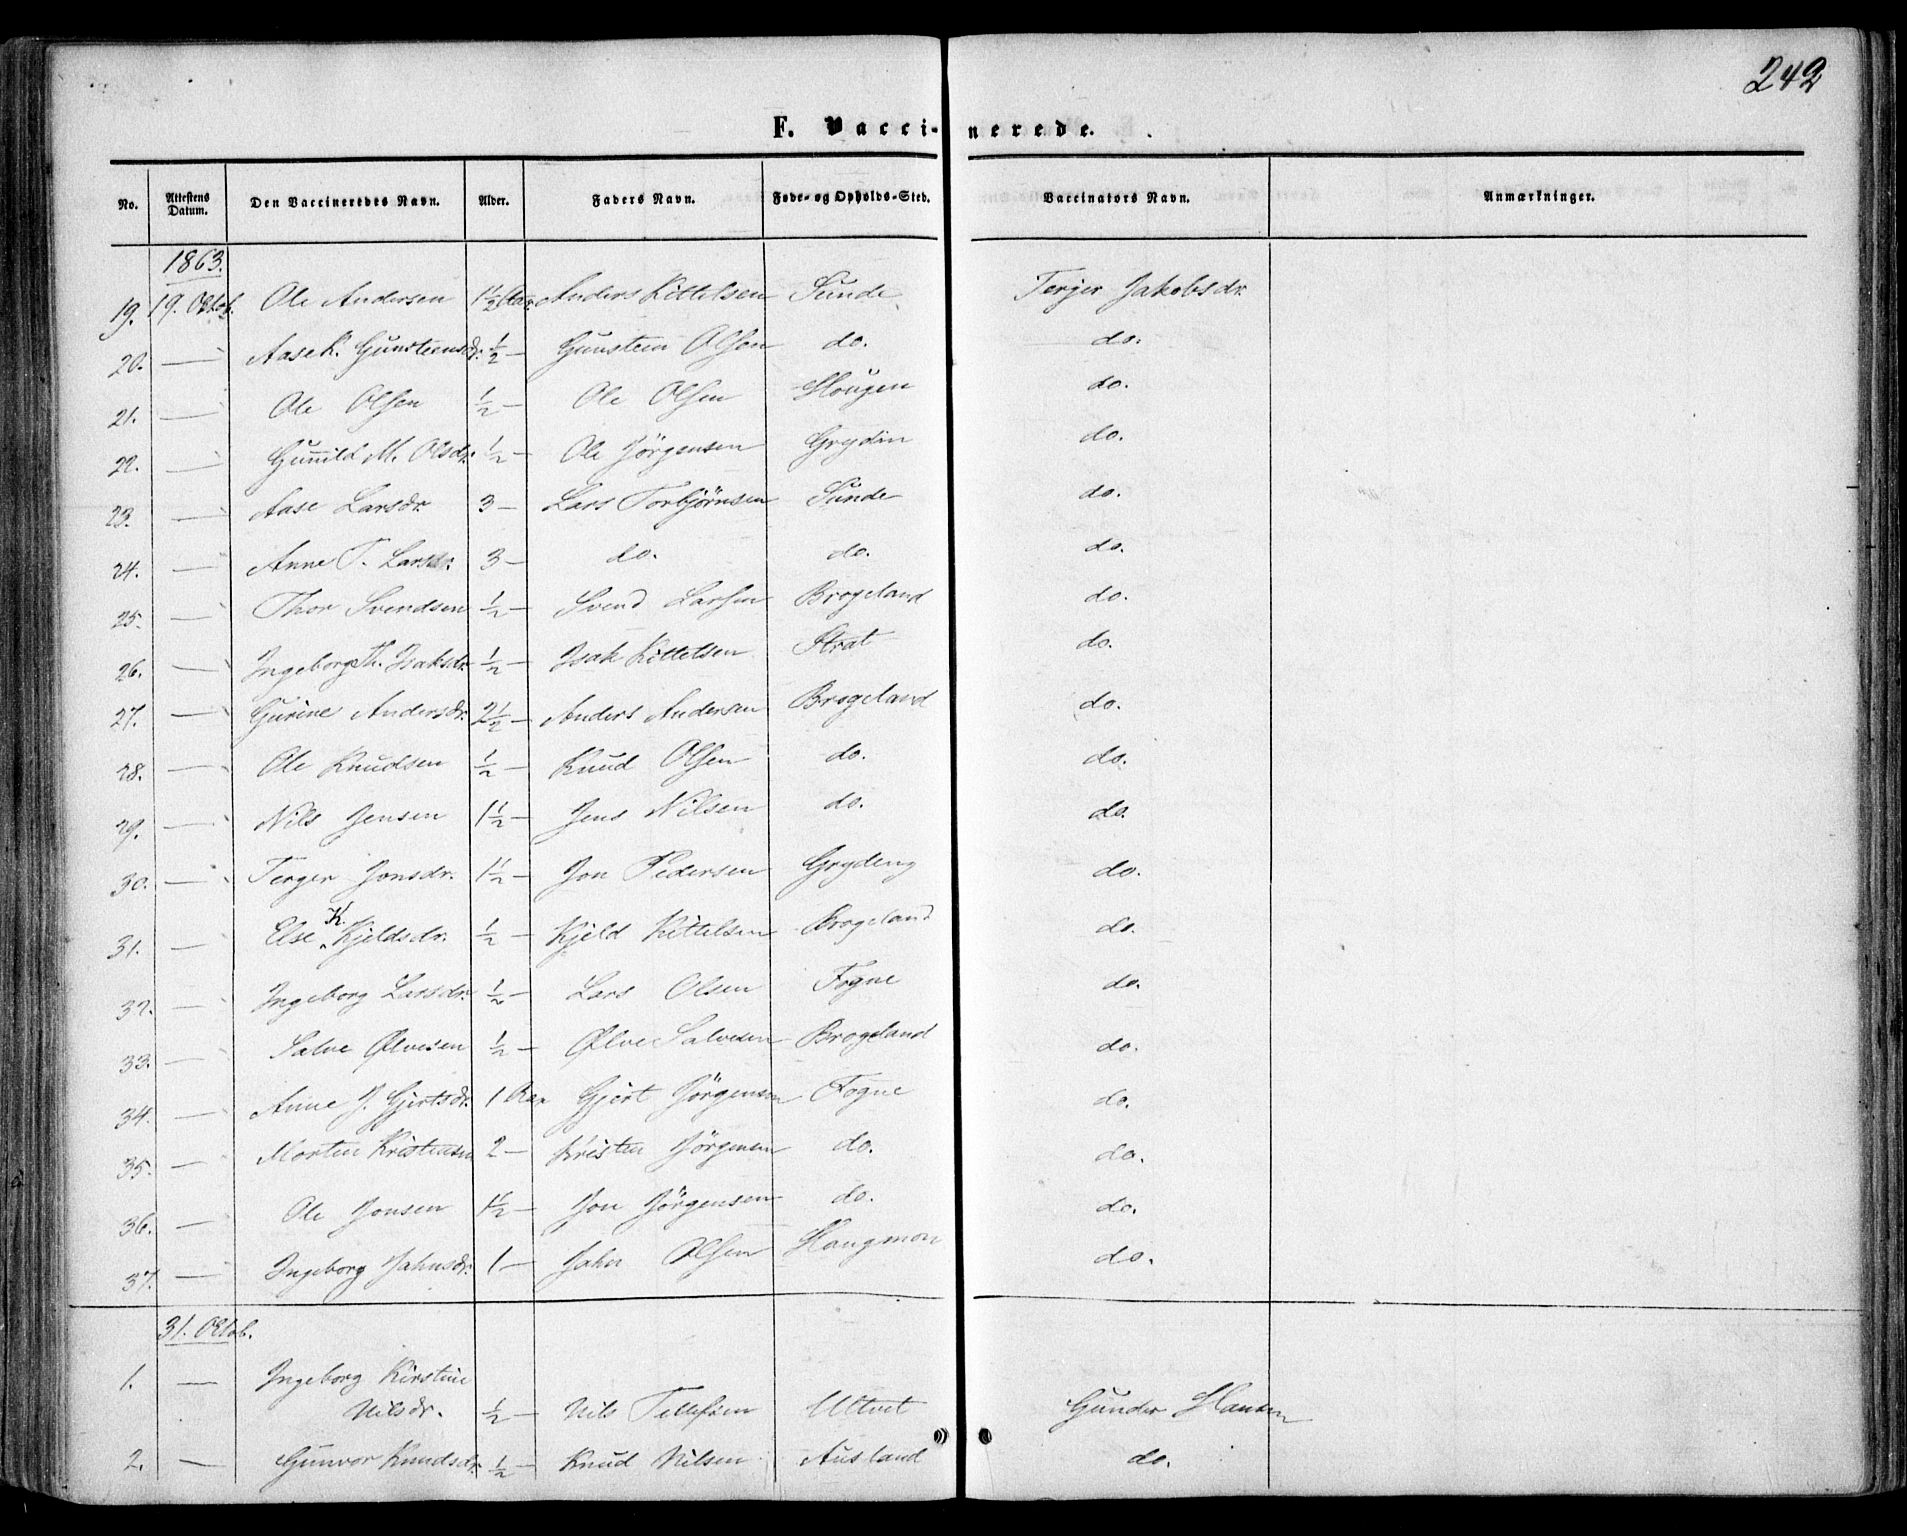 242
F. Vaccinerede.
No. Attestens Datum. Den Vaccineredes Navn. Alder. Faders Navn. Føde- og Opholds-Sted. Vaccinators Navn. Anmærkninger.
1863.
19. 19. Oktob. Ole Andersen 1½ Aar Anders Kittelsen Sunde Terjer Jakobsdr.
20. — Aase K. Gunsteensdr. ½ — Gunstein Olsen do. do.
21. — Ole Olsen ½ — Ole Olsen Hougen do.
22. — Gunild M. Olsdr. ½ — Ole Jörgensen Grydin do.
23. — Aase Larsdr. 3 — Lars Torbjørnsen Sunde do.
24. — Anne T. Larsdr. 3 — do. do. do.
25. — Thor Svendsen ½ — Svend Larsen Brogeland do.
26. — Ingeborg Th. Isaksdr. ½ — Isak Kittelsen Strat do.
27. — Gurine Andersdr. 2½ — Anders Andersen Brogeland do.
28. — Ole Knudsen ½ — Knud Olsen do. do.
29. — Nils Jensen 1½ — Jens Nilsen do. do.
30. — Terger Jonsdr. 1½ — Jon Pedersen Grydeng do.
31. — Else K. Kjeldsdr. ½ — Kjeld Kittelsen Brogeland do.
32. — Ingeborg Larsdr. ½ — Lars Olsen Fogne do.
33. — Salve Ølvesen ½ — Ølve Salvesen Brogeland do.
34. — Anne J. Gjertsdr. 1 Aar Gjert Jörgensen Fogne do.
35. — Morten Kristensen 2 — Kristen Jörgensen do. do.
36. — Ole Jonsen 1½ — Jon Jörgensen do. do.
37. — Ingeborg Jahnsdr. 1 — Jahn Olsen Haugmon do.
31. Oktob.
1. — Ingeborg Kirstine
Nilsdr. ½ — Nils Tellefsen Ultvet Gunder Hansen
2. — Gunvor Knudsdr. ½ — Knud Nilsen Ausland do.